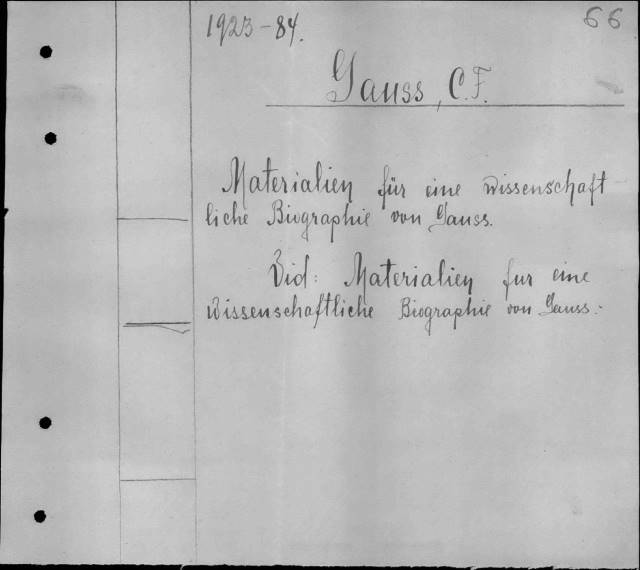 1923-84.
66
Gauss, C.F.
Materialien für eine wissenschaft
liche Biographie von Gauss.
Vid: Materialien fur eine
wissenschaftliche Biographie von Gauss.-